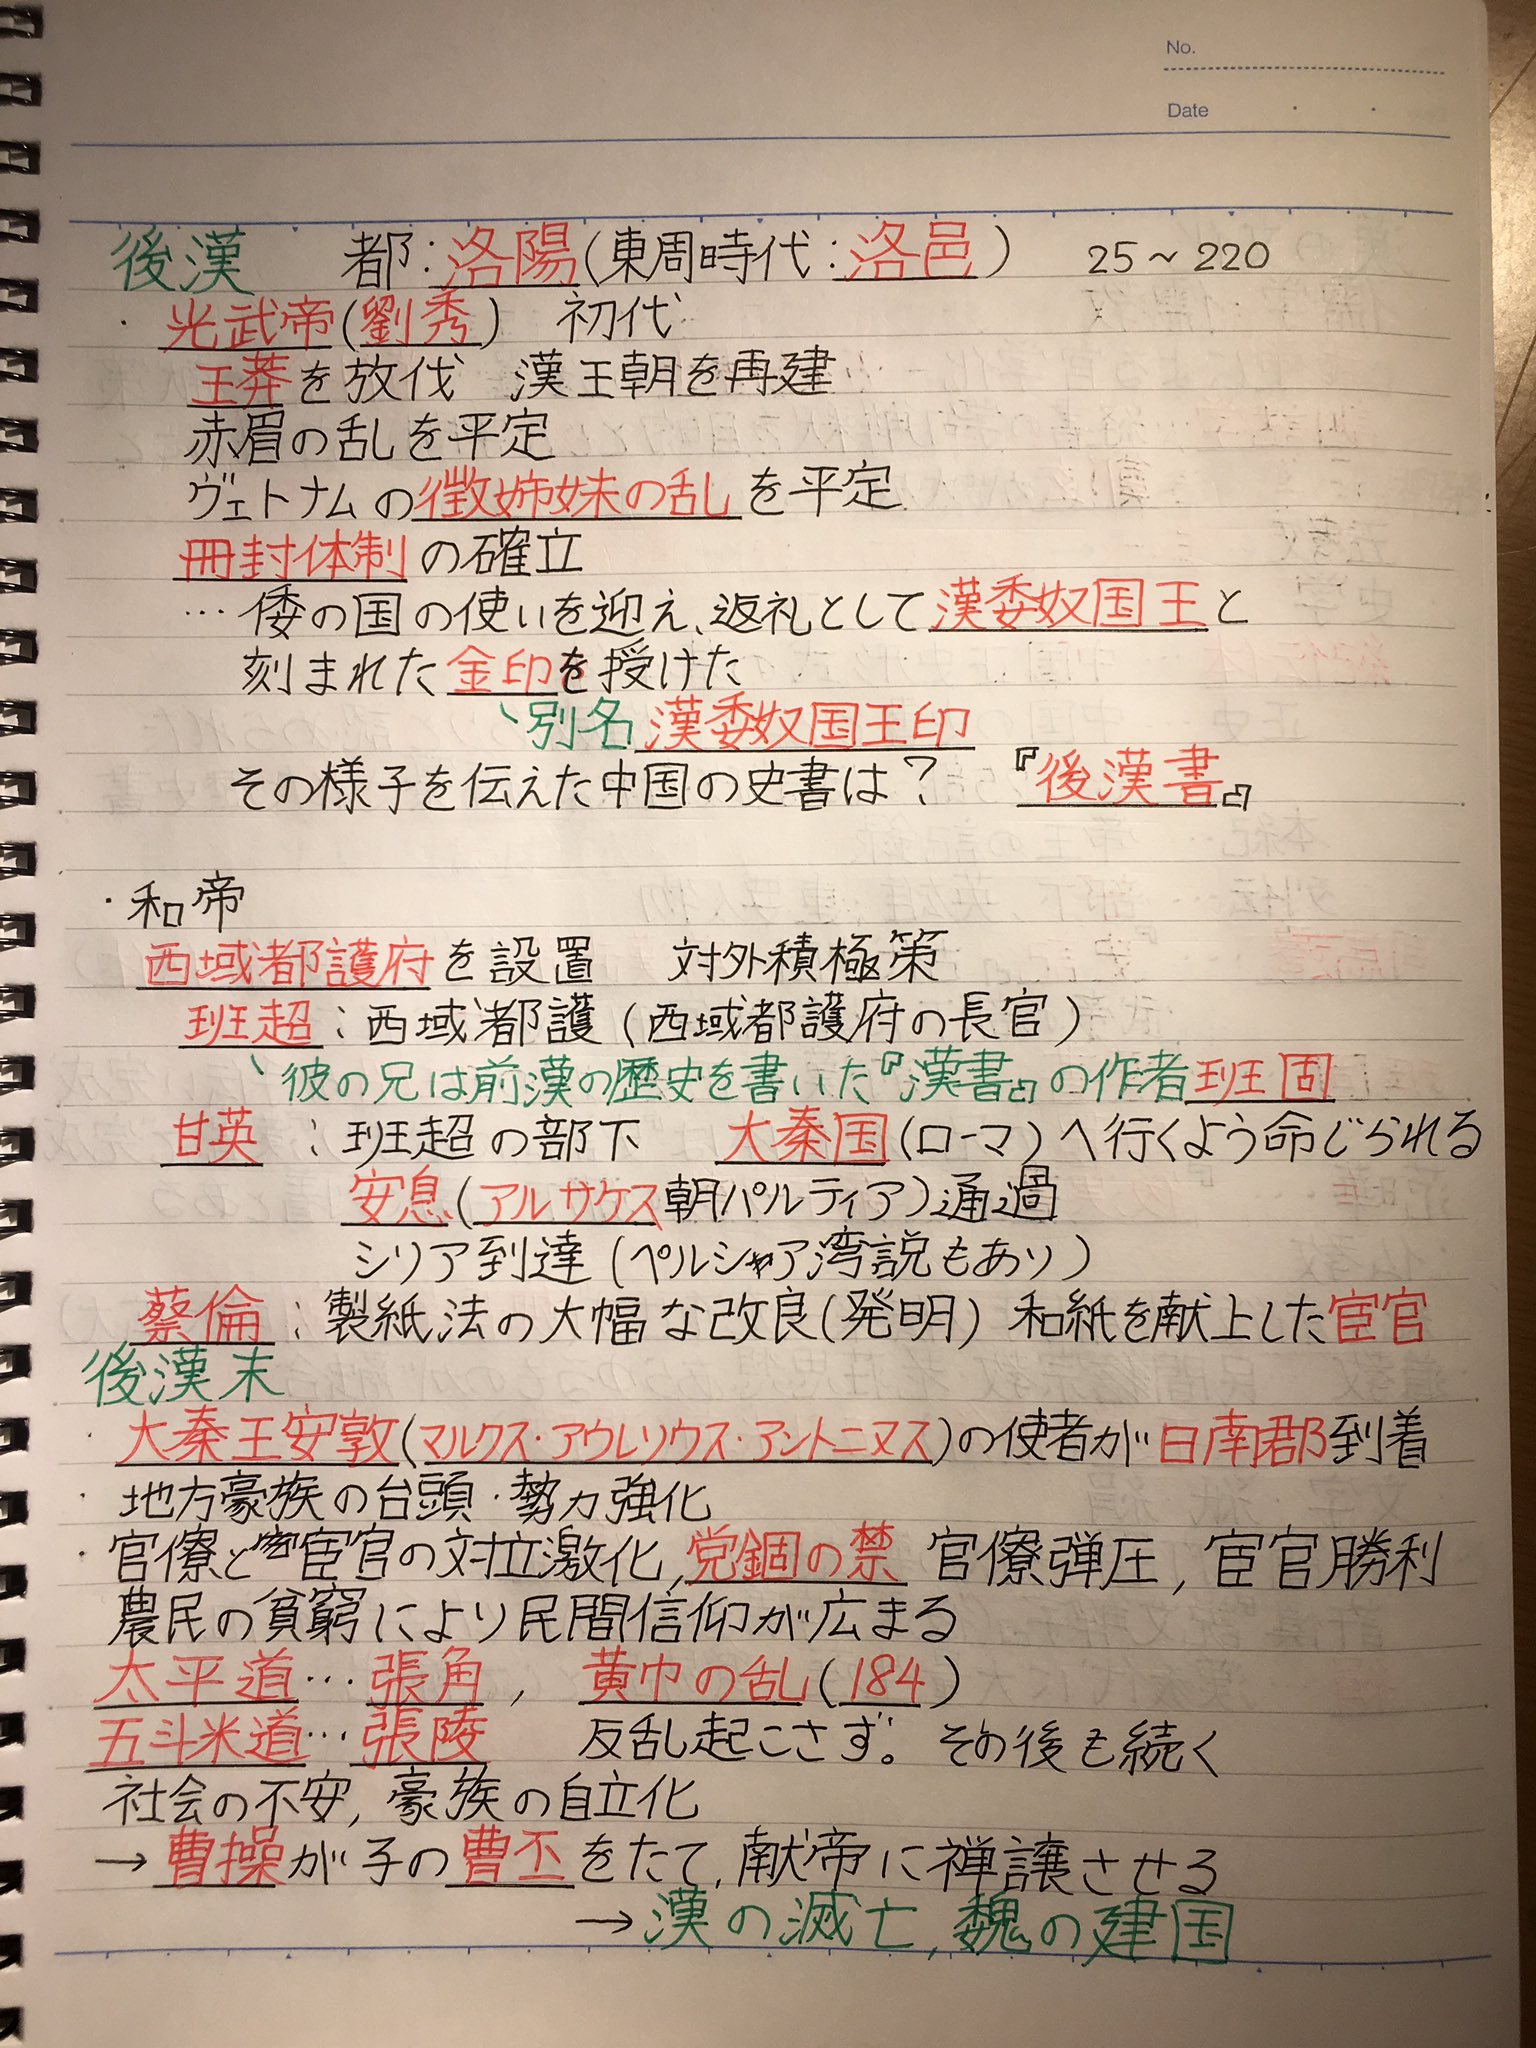 No.
Date
後漢 都:洛陽(東周時代:洛邑) 25~220
・光武帝(劉秀) 初代
王莽を放伐 漢王朝を再建
赤眉の乱を平定
ヴェトナムの徴姉妹の乱を平定
冊封体制の確立
…倭の国の使いを迎え、返礼として漢委奴国王と
刻まれた金印を授けた
別名漢委奴国王印
その様子を伝えた中国の史書は? 『後漢書』
・和帝
西域都護府を設置 対外積極策
班超:西域都護(西域都護府の長官)
彼の兄は前漢の歴史を書いた『漢書』の作者班固
甘英:班超の部下 大秦国(ローマ)へ行くよう命じられる
安息(アルサケス朝パルティア)通過
シリア到達(ペルシャア湾説もあり)
蔡倫:製紙法の大幅な改良(発明) 和紙を献上した宦官
後漢末
・大秦王安敦(マルクス・アウレリウス・アントニヌス)の使者が日南郡到着
・地方豪族の台頭・勢力強化
・官僚と宦官の対立激化,党錮の禁 官僚弾圧,宦官勝利
農民の貧窮により民間信仰が広まる
太平道…張角, 黄巾の乱(184)
五斗米道…張陵 反乱起こさず。その後も続く
社会の不安,豪族の自立化
→曹操が子の曹丕をたて,献帝に禅譲させる
→漢の滅亡,魏の建国